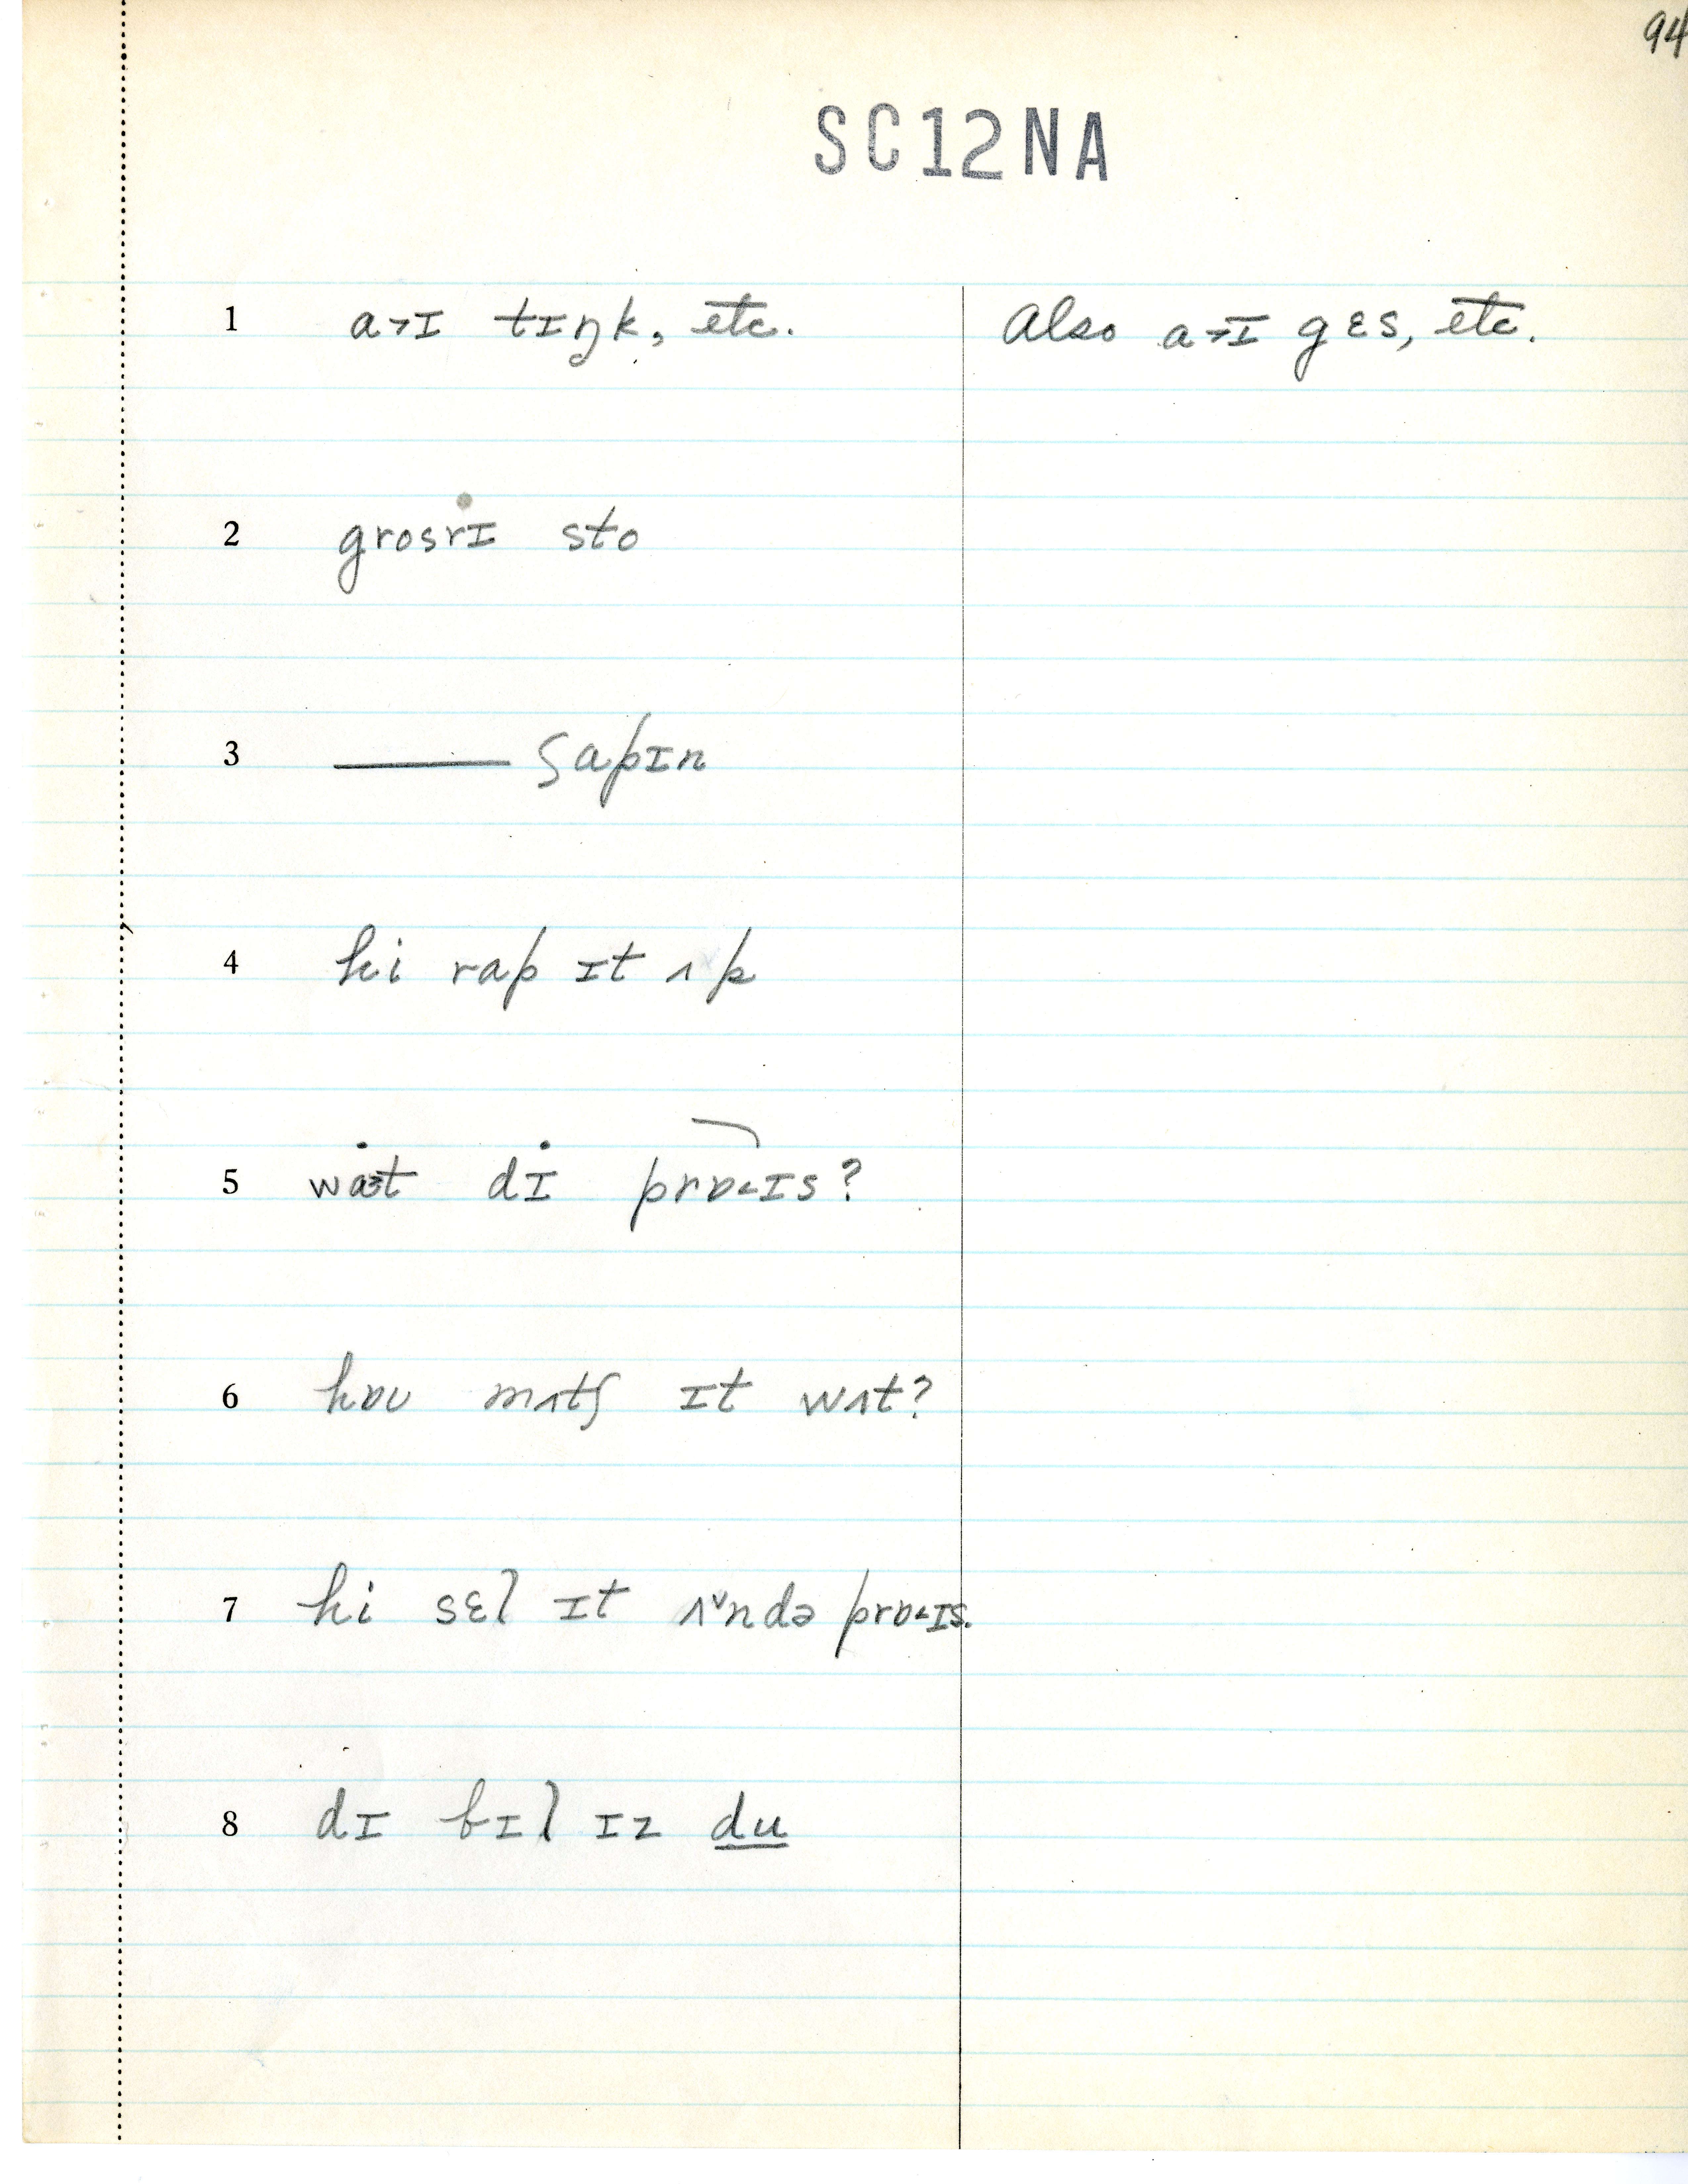 94
SC12NA
1 a˃ɪ tɪŋk, etc. Also a˃ɪ gɛs, etc.
2 grosrɪ sto
3 —— ʃapɪn
4 hi rap ɪt ʌp
5 dɪ prɒ˂ɪs?
6 hɒʊ mʌtʃ ɪt wʌt?
7 hi sɛl ɪt ʌ˅ndə prɒ˂ɪs.
8 dɪ bɪl ɪz du